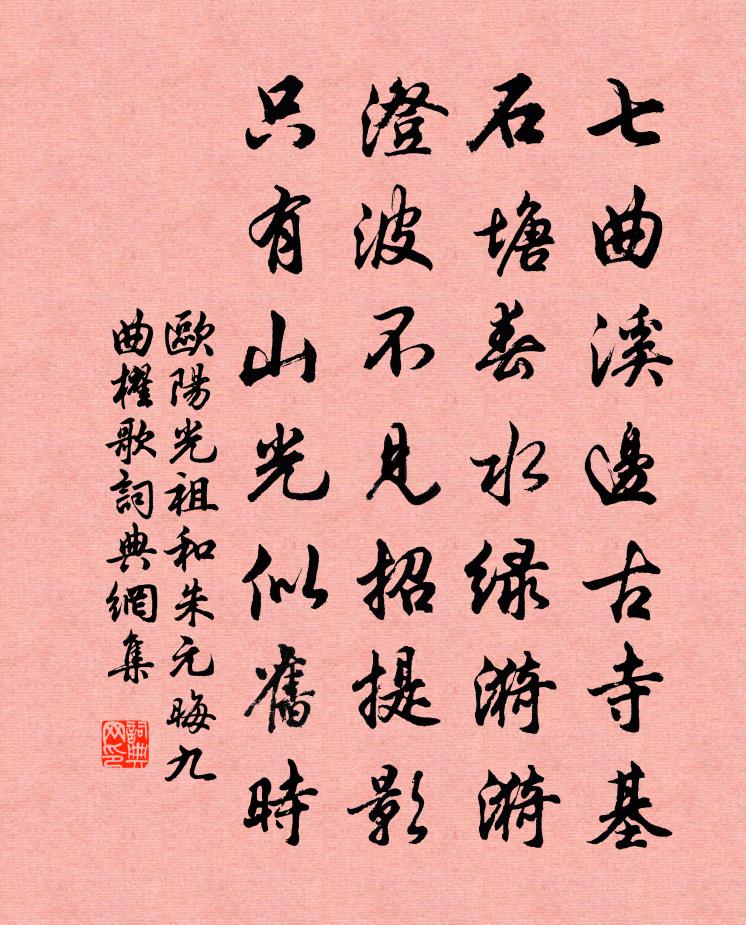 七曲溪邊古寺基
石塘春水绿漪漪
澄波不見招提影
只有山光似舊時
歐陽光祖和朱元晦九
曲櫂歌詞典網集
詞典
网印